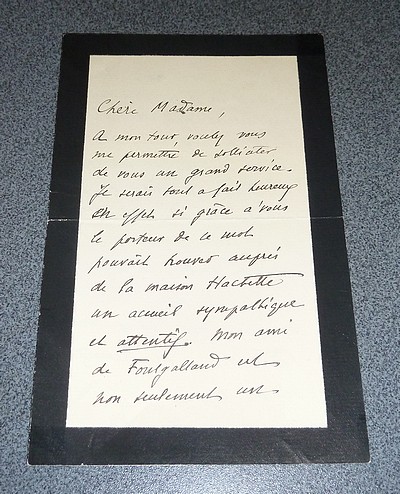 Chère Madame,
A mon tour, voulez vous
me permettre de solliciter
de vous un grand service.
Je serais tout a fais heureux
en effet si grâce à vous
le porteur de ce mot
pouvait trouver auprès
de la maison Hachette
un accueil sympathique
et attentif. Mon ami
de Foulgalland est
non seulement un